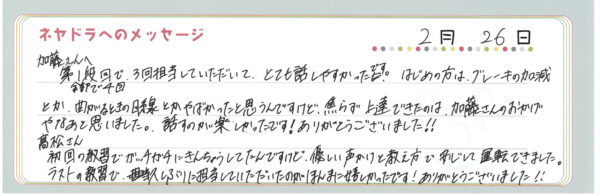 ネヤドラへのメッセージ
2月 26日
加藤さんへ
第1段回で、3回担当していただいて、とても話しやすかったです。はじめの方は、ブレーキの加減
全部で4回
とか、曲がるときの目線とかやばかったと思うんですけど、焦らず上達できたのは、加藤さんのおかげ
やなあと思いました。話すのが楽しかったです!ありがとうございました!!
高松さん
初回の教習でガッチガチにきんちょうしてたんですけど、優しい声かけと教え方で安心して運転できました。
ラストの教習で、久しぶりに担当していただいたのがほんまに嬉しかったです!ありがとうございました!!